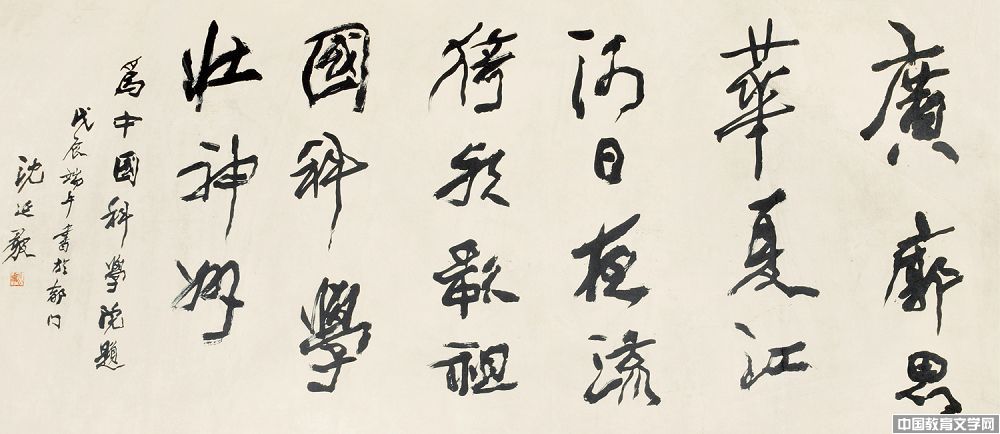 廣廓思
華夏江
河日夜流
猗歟歌祖
國科學
壯神州
爲中國科學院題
戊辰端午書於都門
沈延毅
中国教育文学网